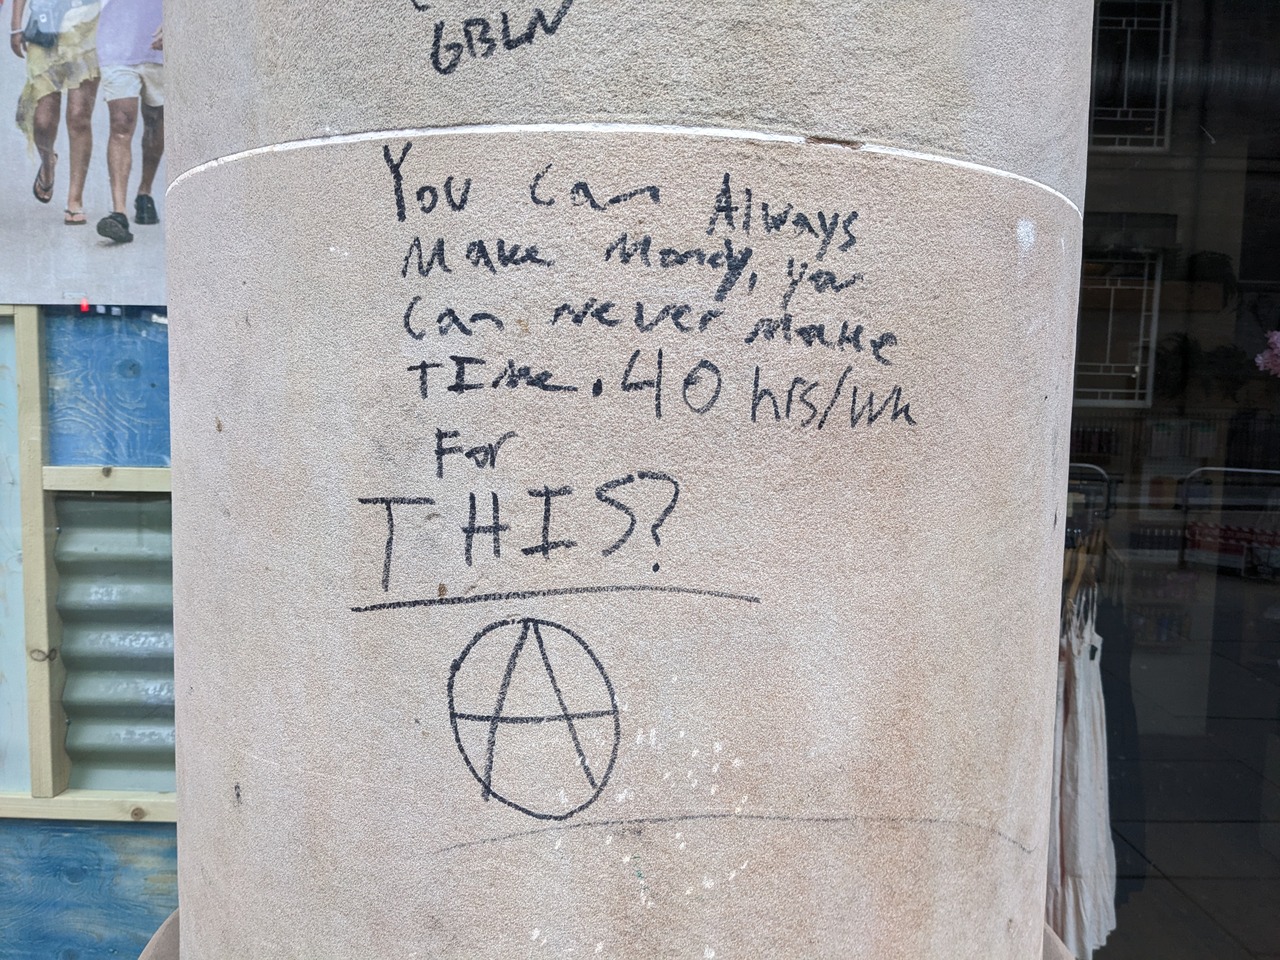 GBLN
You Can Always
Make Money, you
Can Never Make
TIme. 40 hrs/wk
For
THIS?
A